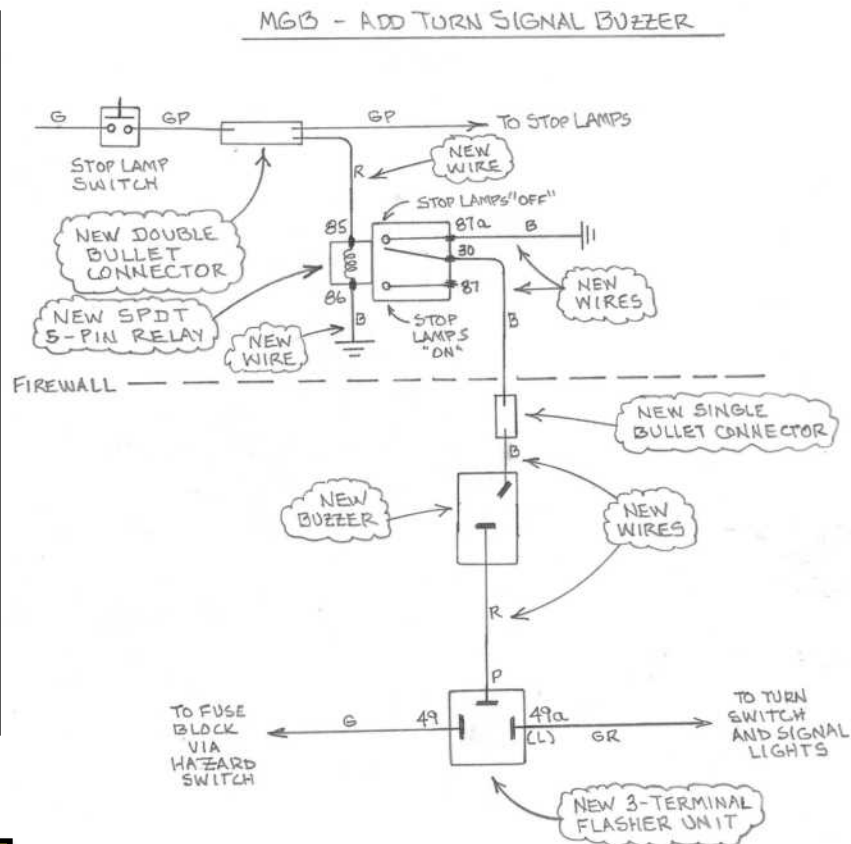 MGB - ADD TURN SIGNAL BUZZER
G
GP
GP
TO STOP LAMPS
STOP LAMP
SWITCH
R
NEW
WIRE
STOP LAMPS "OFF"
NEW DOUBLE
BULLET
CONNECTOR
85
87a
B
30
86
87
NEW SPDT
5-PIN RELAY
NEW
WIRE
B
STOP
LAMPS
"ON"
B
NEW
WIRES
FIREWALL
NEW SINGLE
BULLET CONNECTOR
B
NEW
BUZZER
NEW
WIRES
R
P
TO FUSE
BLOCK
VIA
HAZARD
SWITCH
G
49
49a
(L)
GR
TO TURN
SWITCH
AND SIGNAL
LIGHTS
NEW 3-TERMINAL
FLASHER UNIT